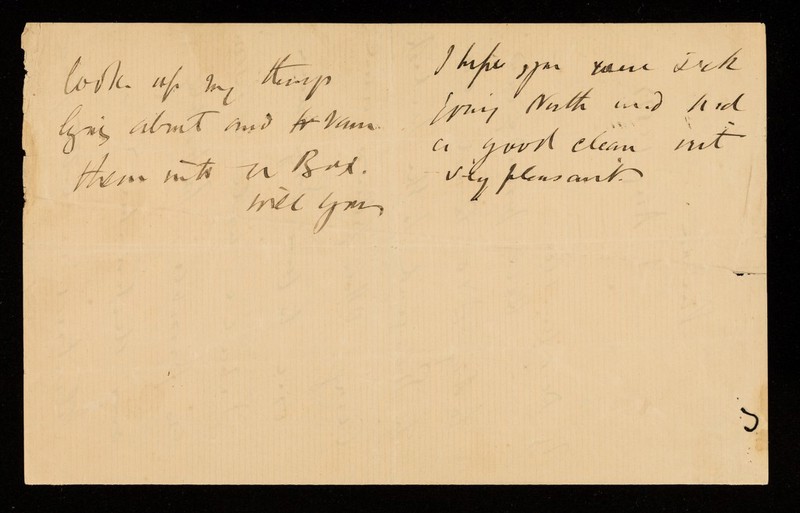 look up my things
lying about and
them into a Box.
will you
I hope you were sick
going North and had
a good clean out
v'y pleasant